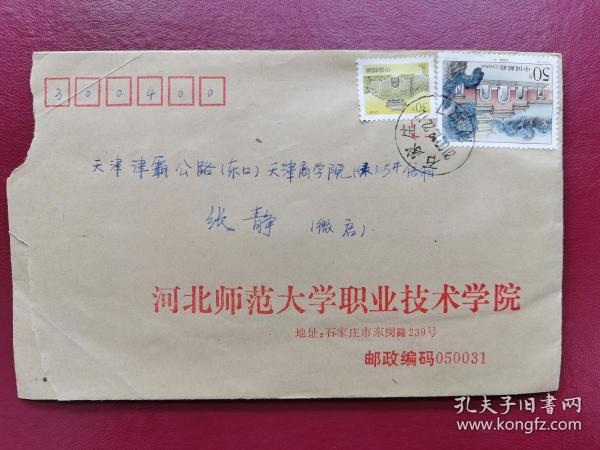 300400
30分
50分
中国邮政 CHINA
石家庄
天津津霸公路(东口)天津商学院
张静(微启)
河北师范大学职业技术学院
地址:石家庄市东岗路239号
邮政编码050031
孔夫子旧书网
www.kongfz.com